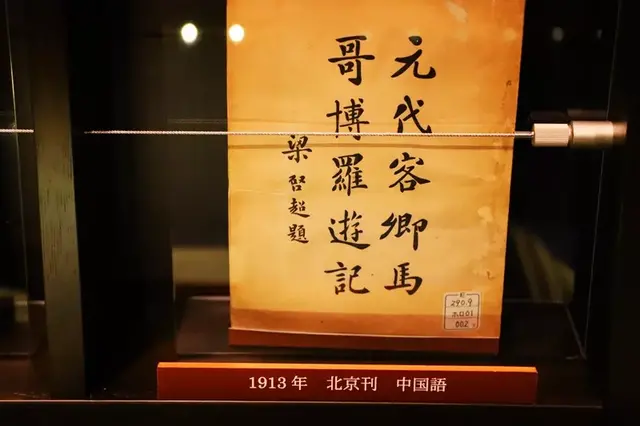 元代客卿馬
哥博羅遊記
梁啓超題
290.9
ホロ01
002
1913年 北京刊 中国語